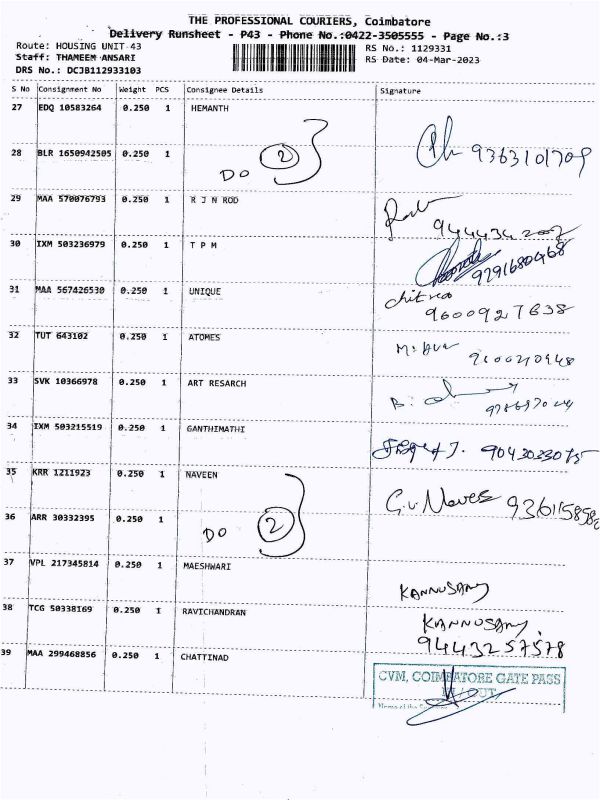 THE PROFESSIONAL COURIERS, Coimbatore
Delivery Runsheet - P43 - Phone No.:0422-3505555 - Page No.:3
Route: HOUSING UNIT 43
RS No.: 1129331
Staff: THAMEEM ANSARI
RS Date: 04-Mar-2023
DRS No.: DCJB112933103
S No Consignment No Weight PCS Consignee Details Signature
27 EDQ 10583264 0.250 1 HEMANTH
28 BLR 1650942505 0.250 1
DO 2
9363101709
29 MAA 570076793 0.250 1 R J N ROD
30 IXM 503236979 0.250 1 T P M
9791680468
31 MAA 567426530 0.250 1 UNIQUE
chitra
9600927638
32 TUT 643102 0.250 1 ATOMES
33 SVK 10366978 0.250 1 ART RESARCH
34 IXM 503215519 0.250 1 GANTHIMATHI
35 KRR 1211923 0.250 1 NAVEEN
36 ARR 30332395 0.250 1
DO 2
37 VPL 217345814 0.250 1 MAESHWARI
KANNUSAMY
38 TCG 50338169 0.250 1 RAVICHANDRAN
KANNUSAMY
9443257578
39 MAA 299468856 0.250 1 CHATTINAD
CVM, COIMBATORE GATE PASS
IN / OUT